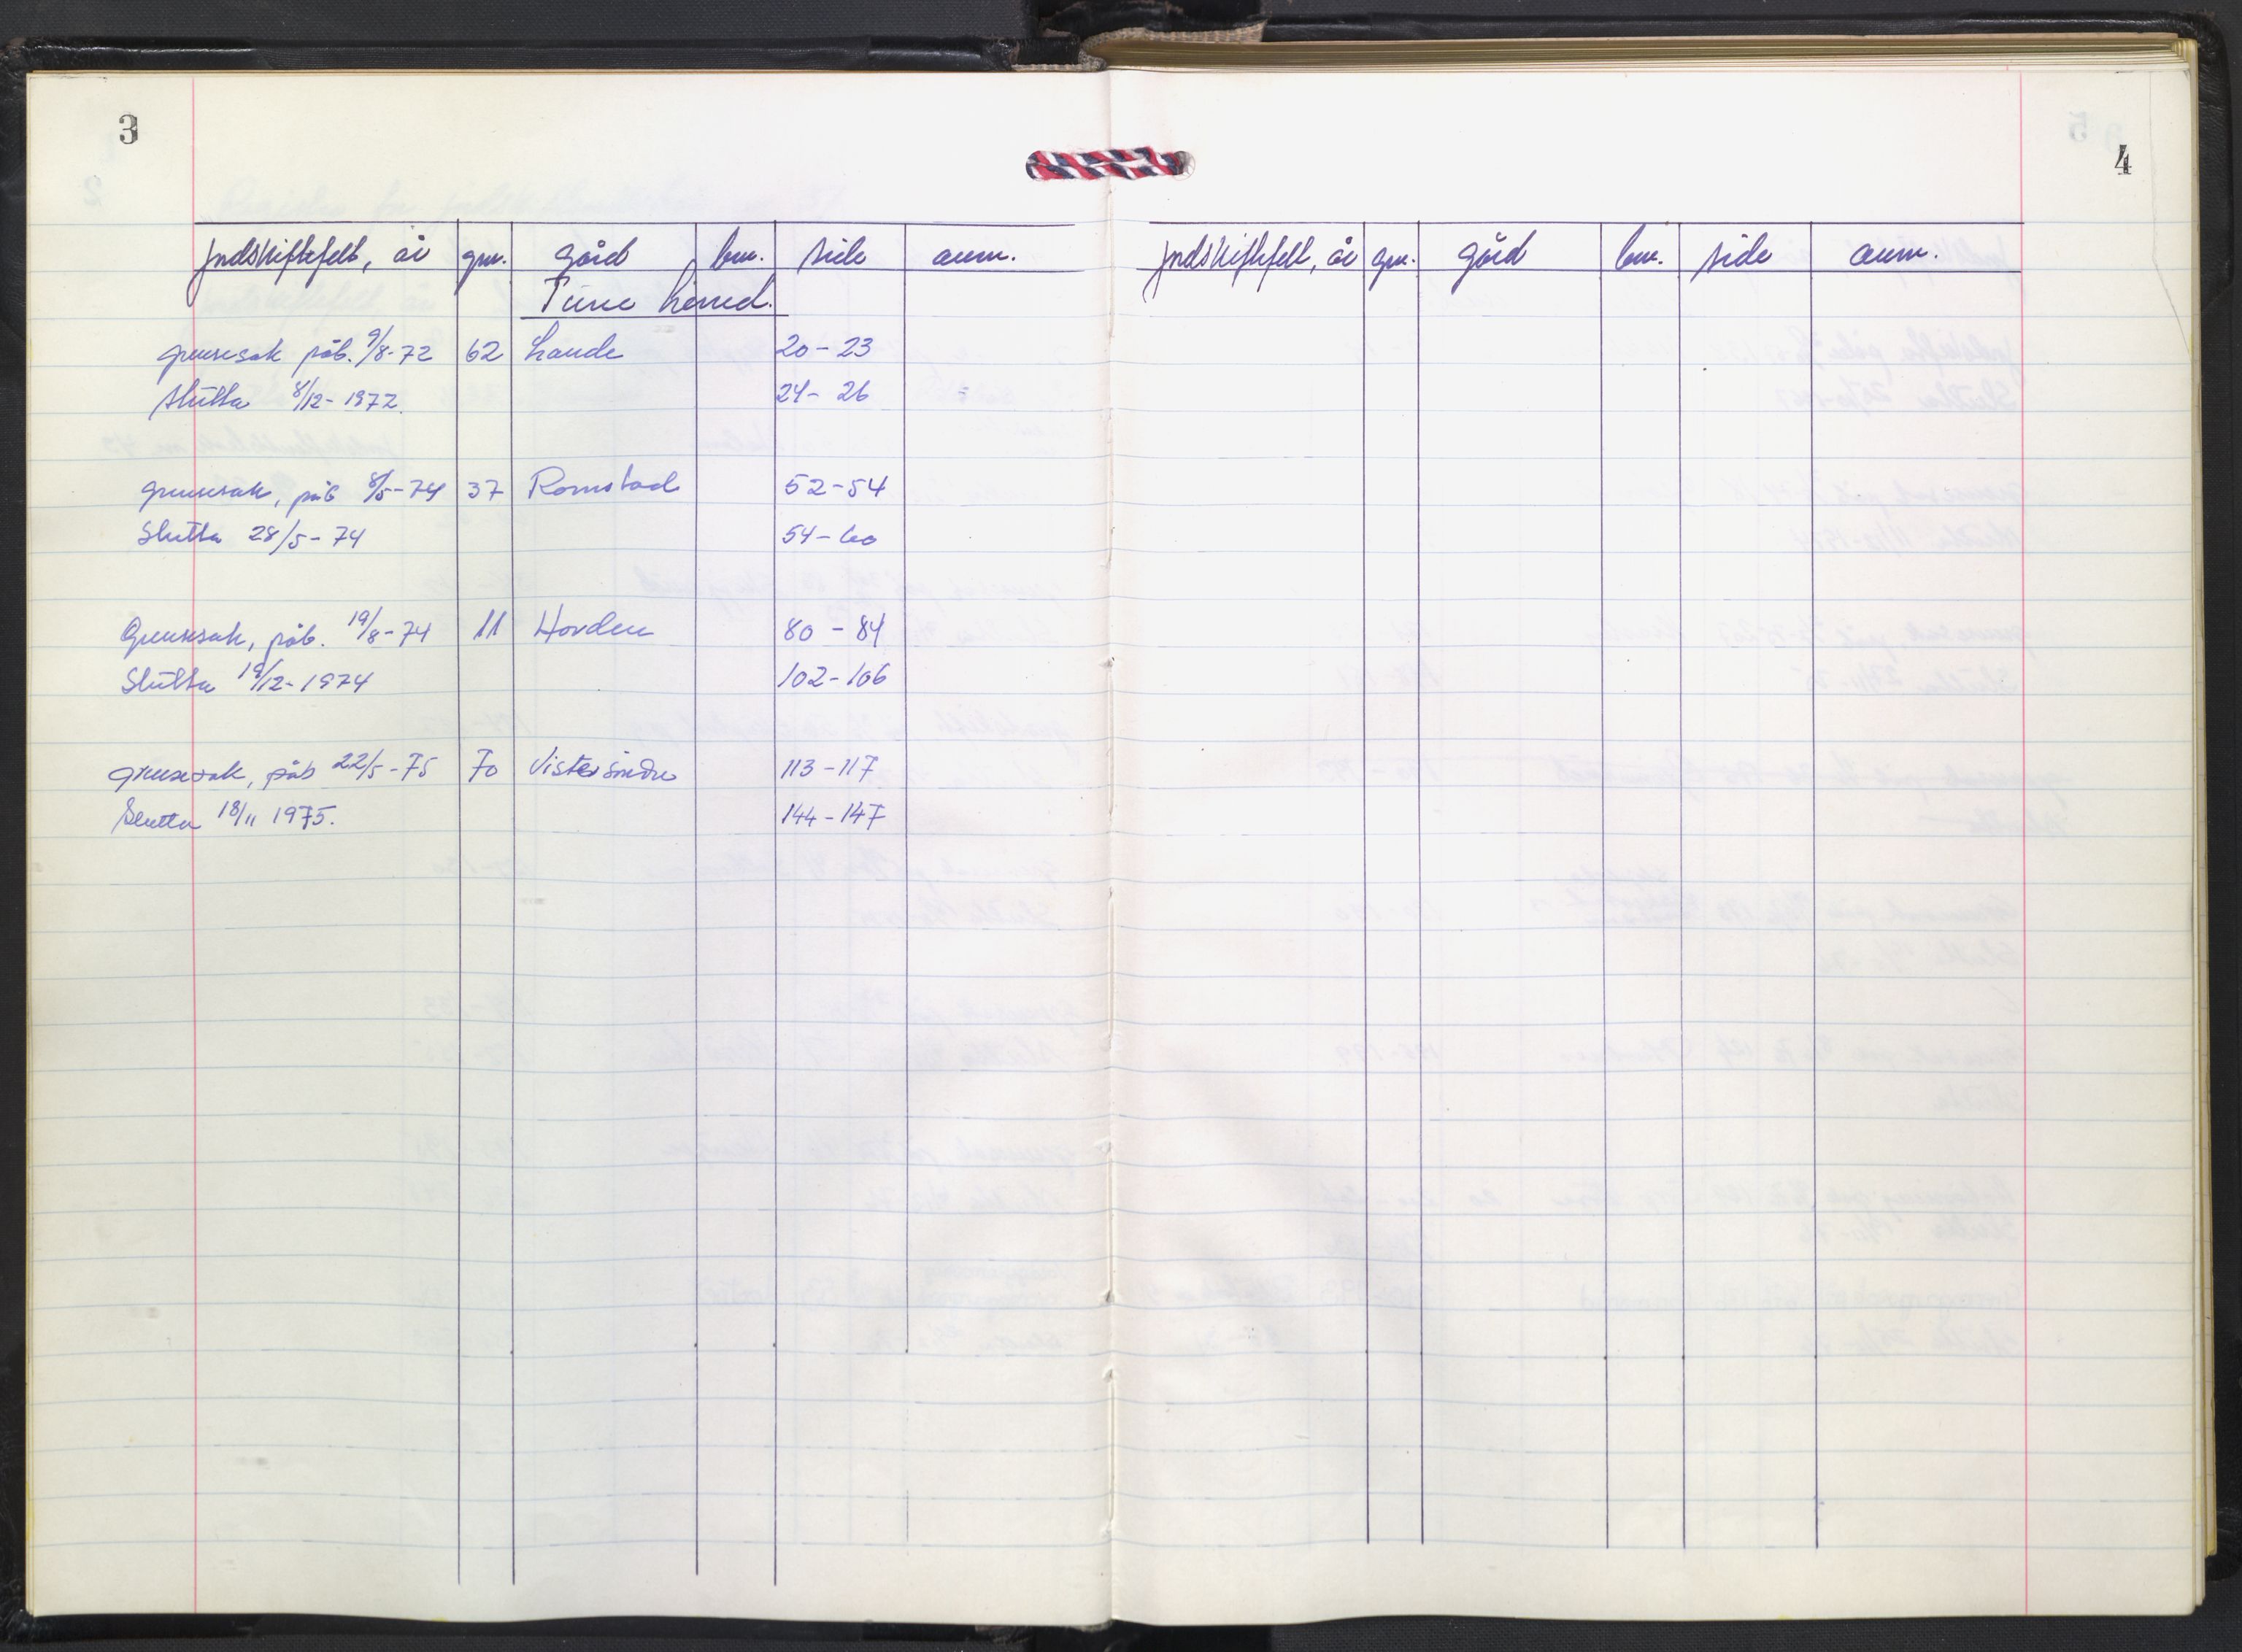 3
Jndskiftefelt, år gnr. gård bnr. side anm.
Tune herred.
grensesak påb. 9/8-72 62 Lande 20-23
slutta 8/12-1972. 24-26
grensesak, påb 8/5-74 37 Romstad 52-54
Slutta 28/5-74 54-60
Grensesak, påb. 19/8-74 11 Hovden 80-84
Slutta 19/12-1974 102-106
grensesak, påb 22/5-75 70 Vister søndre 113-117
Slutta 18/11 1975. 144-147
4
Jndskiftefelt, år gnr. gård bnr. side anm.